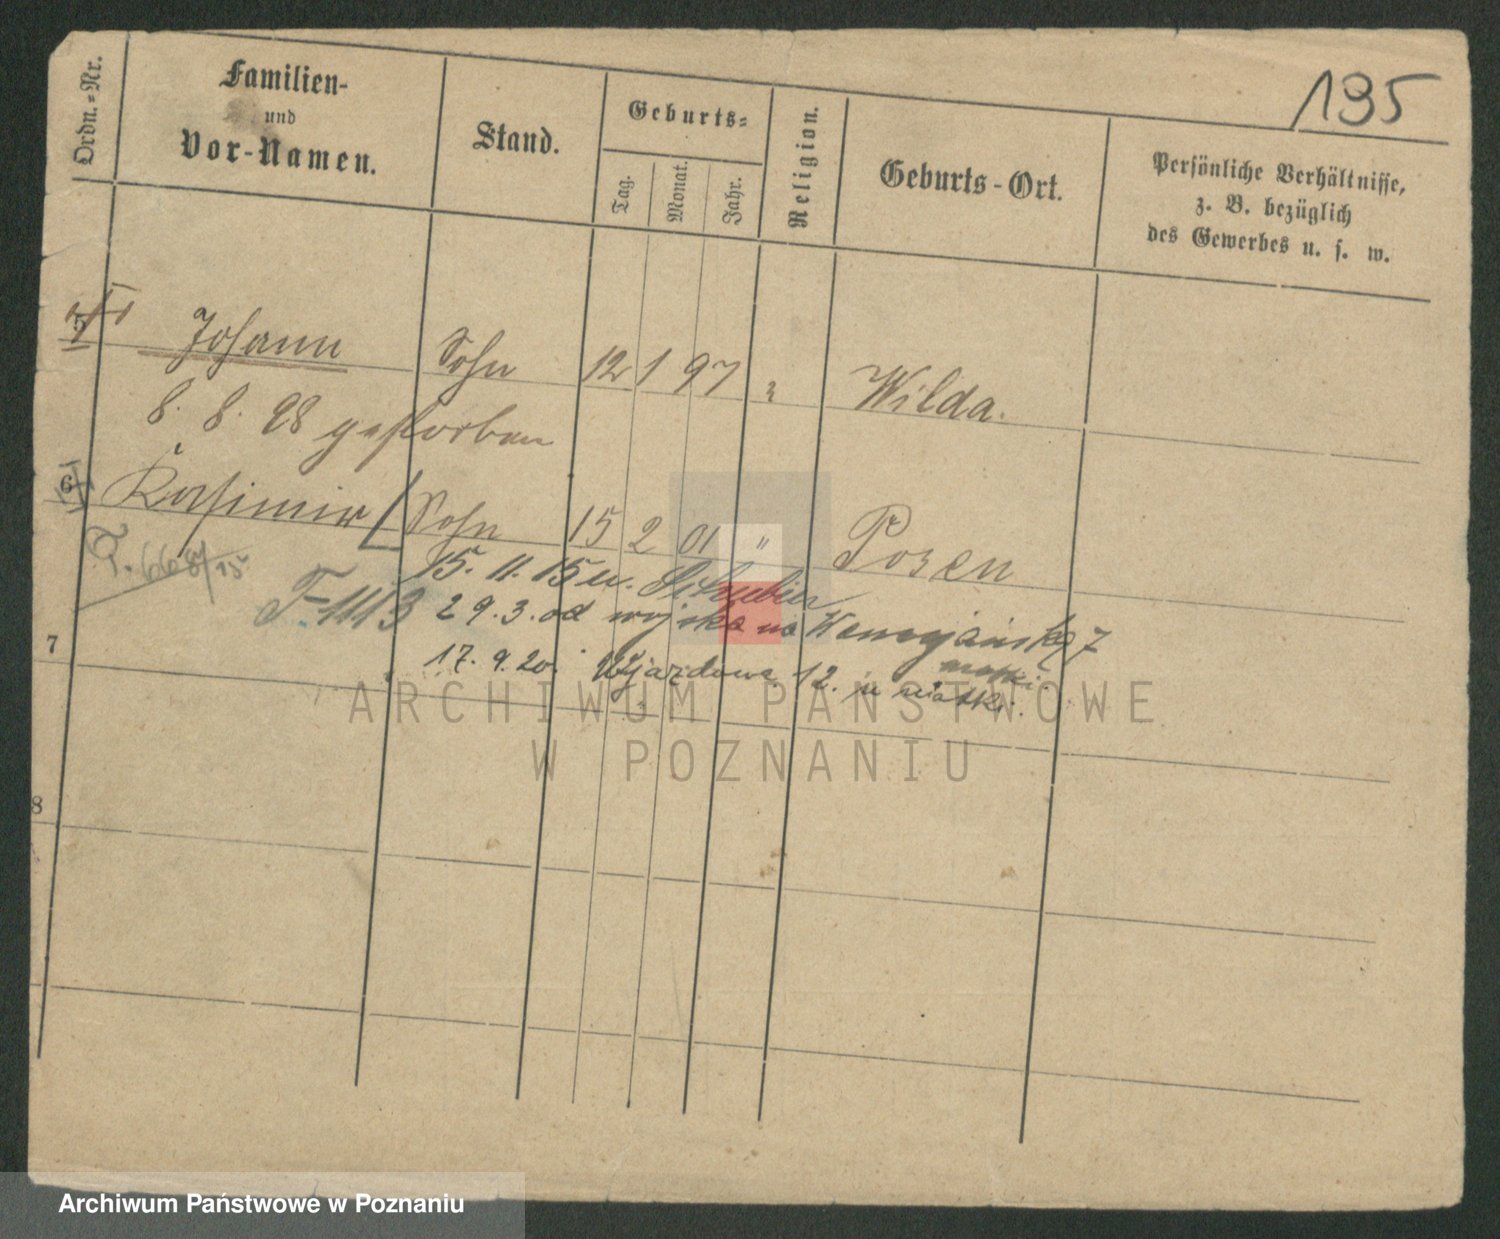 195
Ordn.=Nr.
Familien-
und
Vor-Namen.
Stand.
Geburts=
Tag.
Monat.
Jahr.
Religion.
Geburts-Ort.
Persönliche Verhältnisse,
z. B. bezüglich
des Gewerbes u. s. w.
5 Johann Sohn 12 1 97 Wilda.
8. 8. 98 gestorben
6 Kasimir Sohn 15 2 01 " Posen
T. 668/15
15. 11. 15 u.
F-1113 29.3. od wojska na
7
17. 9. 20. Ujazdowa 12. u matki.
8
ARCHIWUM PAŃSTWOWE
W POZNANIU
Archiwum Państwowe w Poznaniu